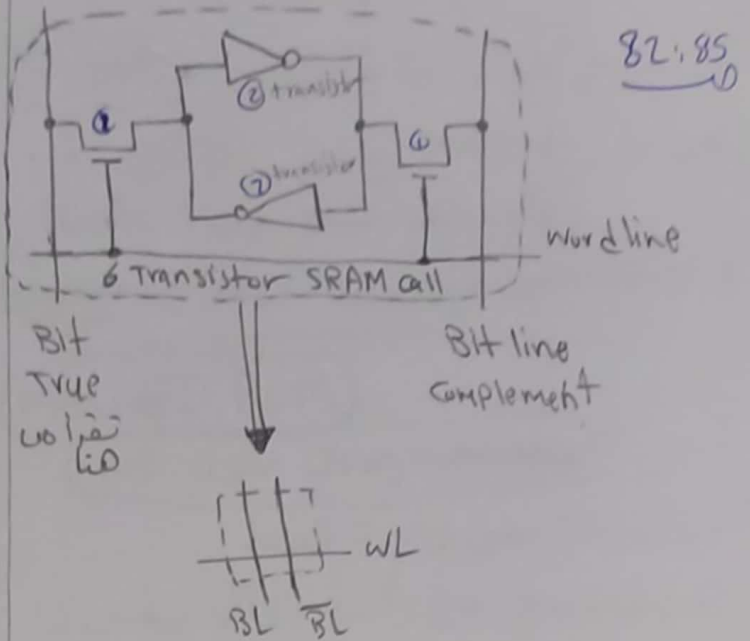 82:85
①
② transistor
② transistor
①
wordline
6 Transistor SRAM call
Bit
True
تقرا من
هنا
Bit line
complement
WL
BL
B̅L̅